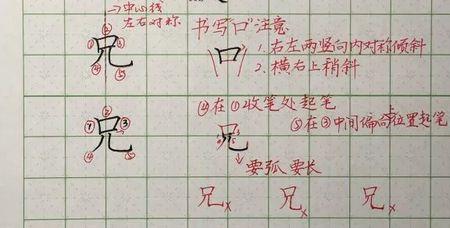 →中心线
左右对称
书写"口"注意
兄
口
1.右左两竖向内对称倾斜
2.横右上稍斜
④在①收笔处起笔
⑤在③中间偏上位置起笔
兄
兄
→要弧 要长
兄× 兄× 兄×